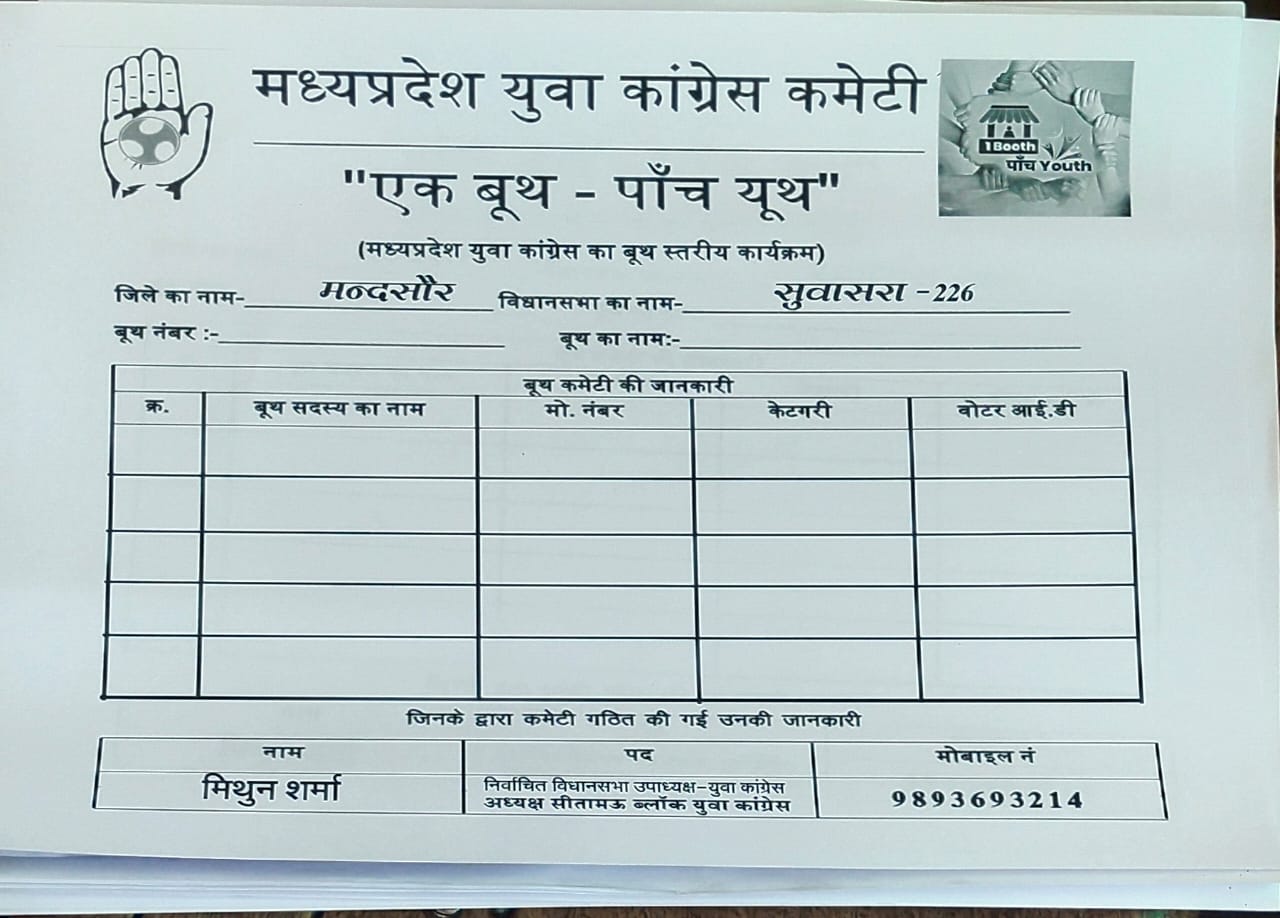 मध्यप्रदेश युवा कांग्रेस कमेटी
1Booth
पाँच Youth
"एक बूथ - पाँच यूथ"
(मध्यप्रदेश युवा कांग्रेस का बूथ स्तरीय कार्यक्रम)
जिले का नाम- मन्दसौर विधानसभा का नाम- सुवासरा -226
बूथ नंबर :- बूथ का नाम:-
बूथ कमेटी की जानकारी
क्र. बूथ सदस्य का नाम मो. नंबर केटगरी वोटर आई.डी
जिनके द्वारा कमेटी गठित की गई उनकी जानकारी
नाम पद मोबाइल नं
मिथुन शर्मा निर्वाचित विधानसभा उपाध्यक्ष-युवा कांग्रेस 9893693214
अध्यक्ष सीतामऊ ब्लॉक युवा कांग्रेस